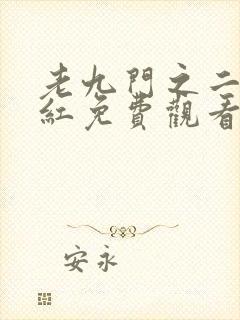 老九門之二
紅免費觀看
安永